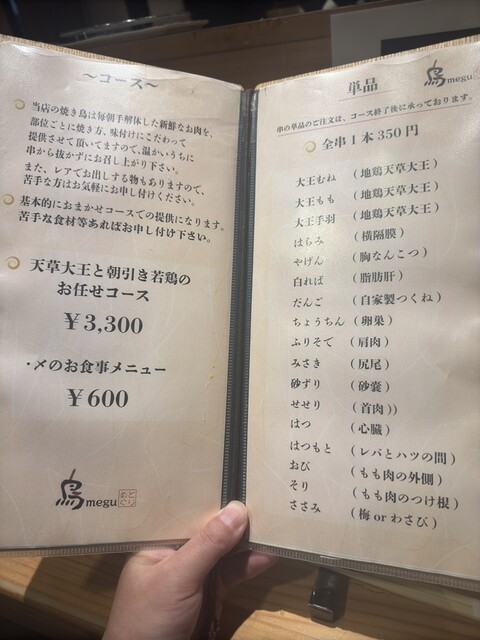 〜コース〜
当店の焼き鳥は毎朝手解体した新鮮なお肉を、
部位ごとに焼き方、味付けにこだわって
提供させて頂いてますので、温かいうちに
串から抜かずにお召し上がり下さい。
また、レアでお出しする物もありますので、
苦手な方はお気軽にお申し付けください。
基本的におまかせコースでの提供になります。
苦手な食材等あればお申し付け下さい。
天草大王と朝引き若鶏の
お任せコース
￥3,300
・〆のお食事メニュー
￥600
鳥megu
めぐ
とり
単品
鳥megu
串の単品のご注文は、コース終了後に承っております。
全串1本350円
大王むね (地鶏天草大王)
大王もも (地鶏天草大王)
大王手羽 (地鶏天草大王)
はらみ (横隔膜)
やげん (胸なんこつ)
白れば (脂肪肝)
だんご (自家製つくね)
ちょうちん (卵巣)
ふりそで (肩肉)
みさき (尻尾)
砂ずり (砂嚢)
せせり (首肉))
はつ (心臓)
はつもと (レバとハツの間)
おび (もも肉の外側)
そり (もも肉のつけ根)
ささみ (梅 or わさび)